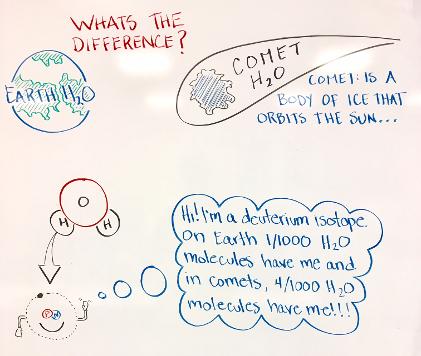 WHATS THE
DIFFERENCE?
EARTH H₂O
COMET
H₂O
COMET: IS A
BODY OF ICE THAT
ORBITS THE SUN...
O
H H
P N
Hi! I'm a deuterium isotope.
On Earth 1/1000 H₂O
molecules have me and
in comets, 4/1000 H₂O
molecules have me!!!